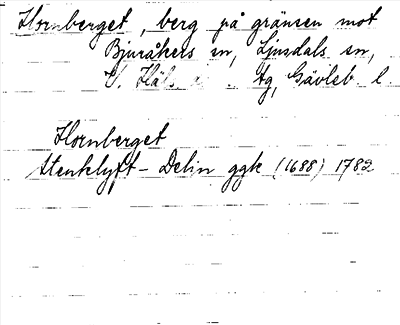 Hornberget, berg på gränsen mot
Bjuråkers sn, Ljusdals sn,
V. Häls tg, Gävleb l.
Hornberget
Stenklyft - Delin ggk (1688) 1782